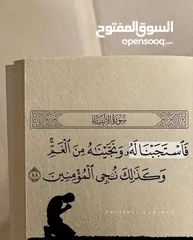 السوق المفتوح
opensooq.com
سورة الأنبياء
فَاسْتَجَبْنَا لَهُ وَنَجَّيْنَاهُ مِنَ الْغَمِّ ۚ
وَكَذَٰلِكَ نُنجِي الْمُؤْمِنِينَ ٨٨